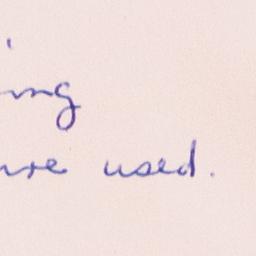 ing
are used.